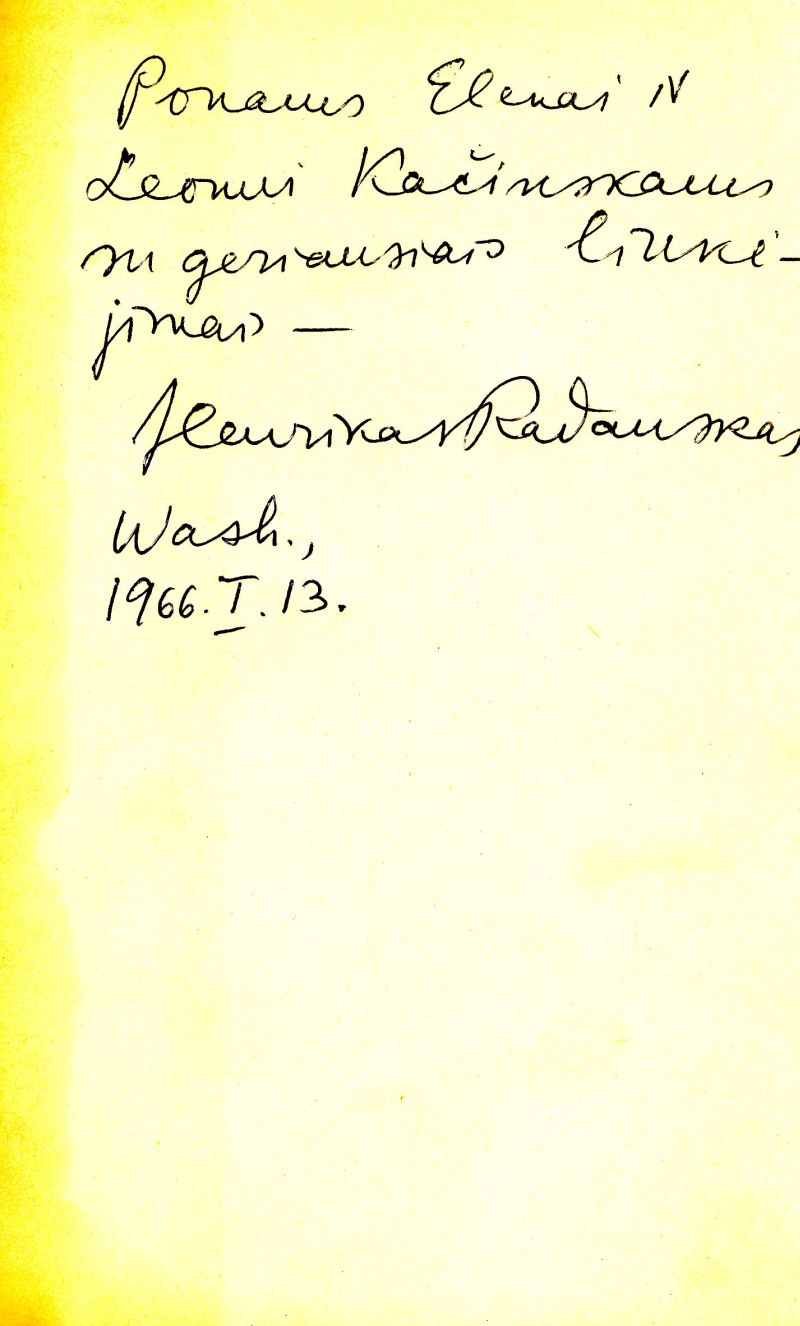 Ponams Elenai ir
Leonui Kačinskams
su geriausiais linkė-
jimais —
Henrikas Radauskas
Wash.,
1966.I.13.